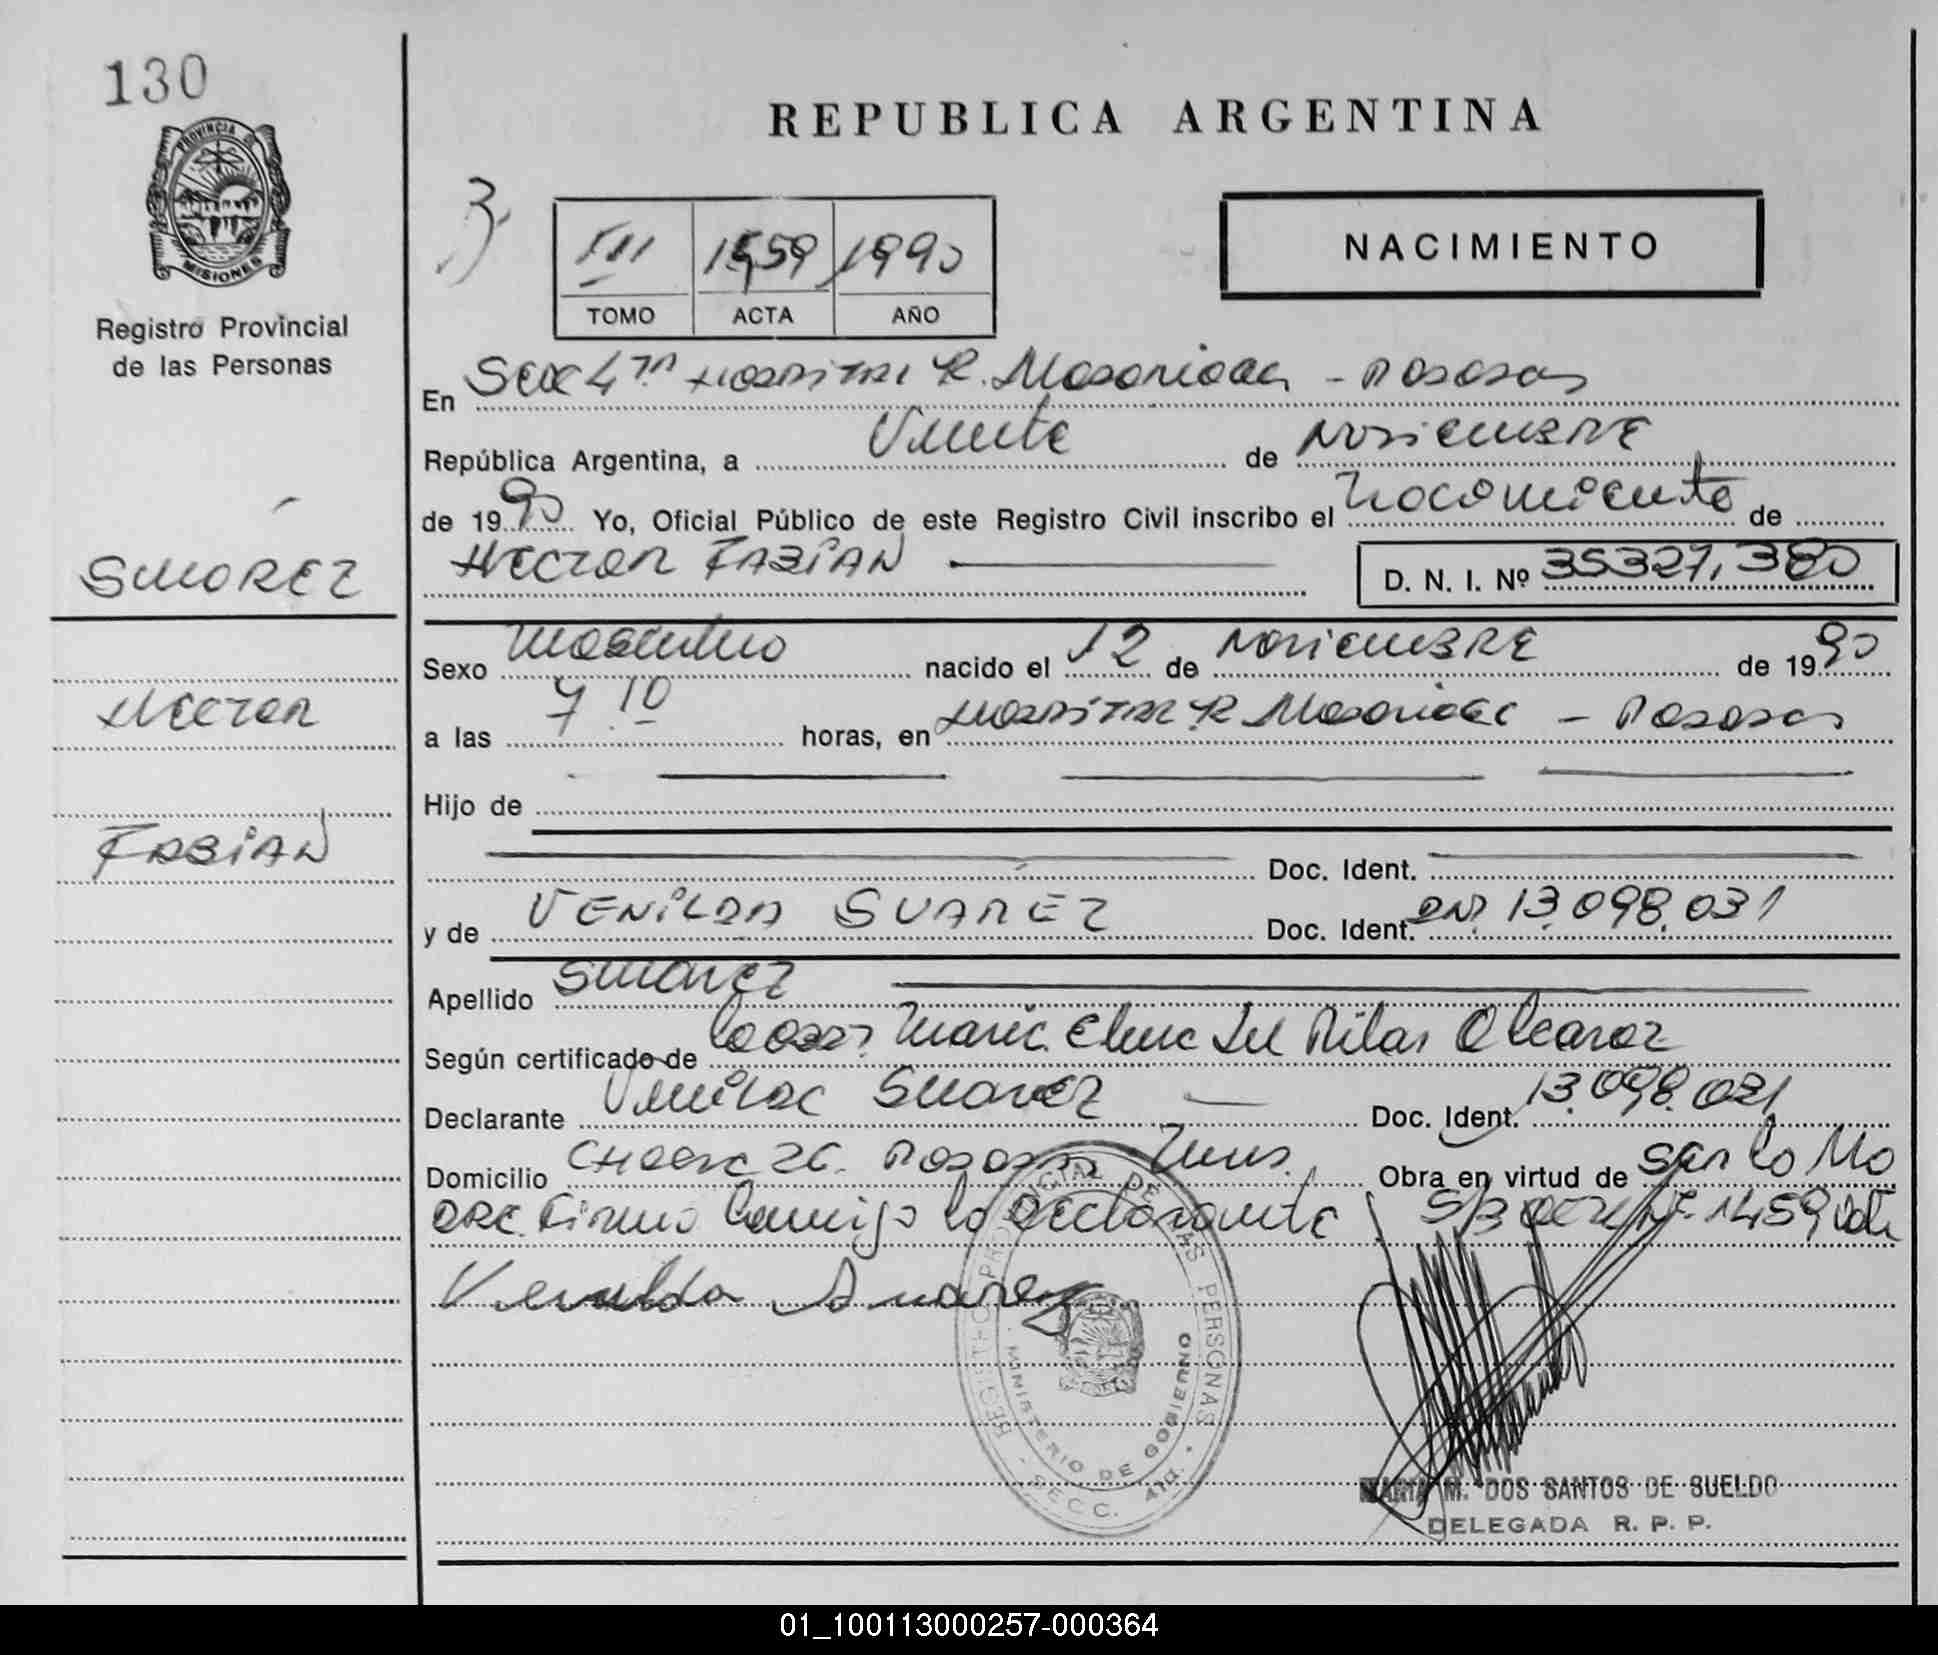 130
PROVINCIA DE
MISIONES
Registro Provincial
de las Personas
SUAREZ
HECTOR
FABIAN
REPUBLICA ARGENTINA
3
III 1459 1990
TOMO ACTA AÑO
NACIMIENTO
En Secc 4ta HOSPITAL R. Madariaga - Posadas
República Argentina, a Veinte de NOVIEMBRE
de 1990 Yo, Oficial Público de este Registro Civil inscribo el Nacimiento de
HECTOR FABIAN D. N. I. Nº 35327,380
Sexo Masculino nacido el 12 de NOVIEMBRE de 1990
a las 7 10 horas, en HOSPITAL R Madariaga - Posadas
Hijo de
Doc. Ident.
y de VENILDA SUAREZ Doc. Ident. DNI 13.098.031
Apellido Suarez
Según certificado de Maria Elena Del Pilar Alcaraz
Declarante Venilda Suarez Doc. Ident. 13.098.031
Domicilio CHACRA 26. Posadas Mnes. Obra en virtud de ser la Ma
dre Firma Conmigo la Declarante S/B acta Nº 1459 Vale
Venilda Suarez
REGISTRO PROVINCIAL DE LAS PERSONAS
MINISTERIO DE GOBIERNO
- SECC. 4TA. -
MARIA M. DOS SANTOS DE SUELDO
DELEGADA R. P. P.
01_100113000257-000364